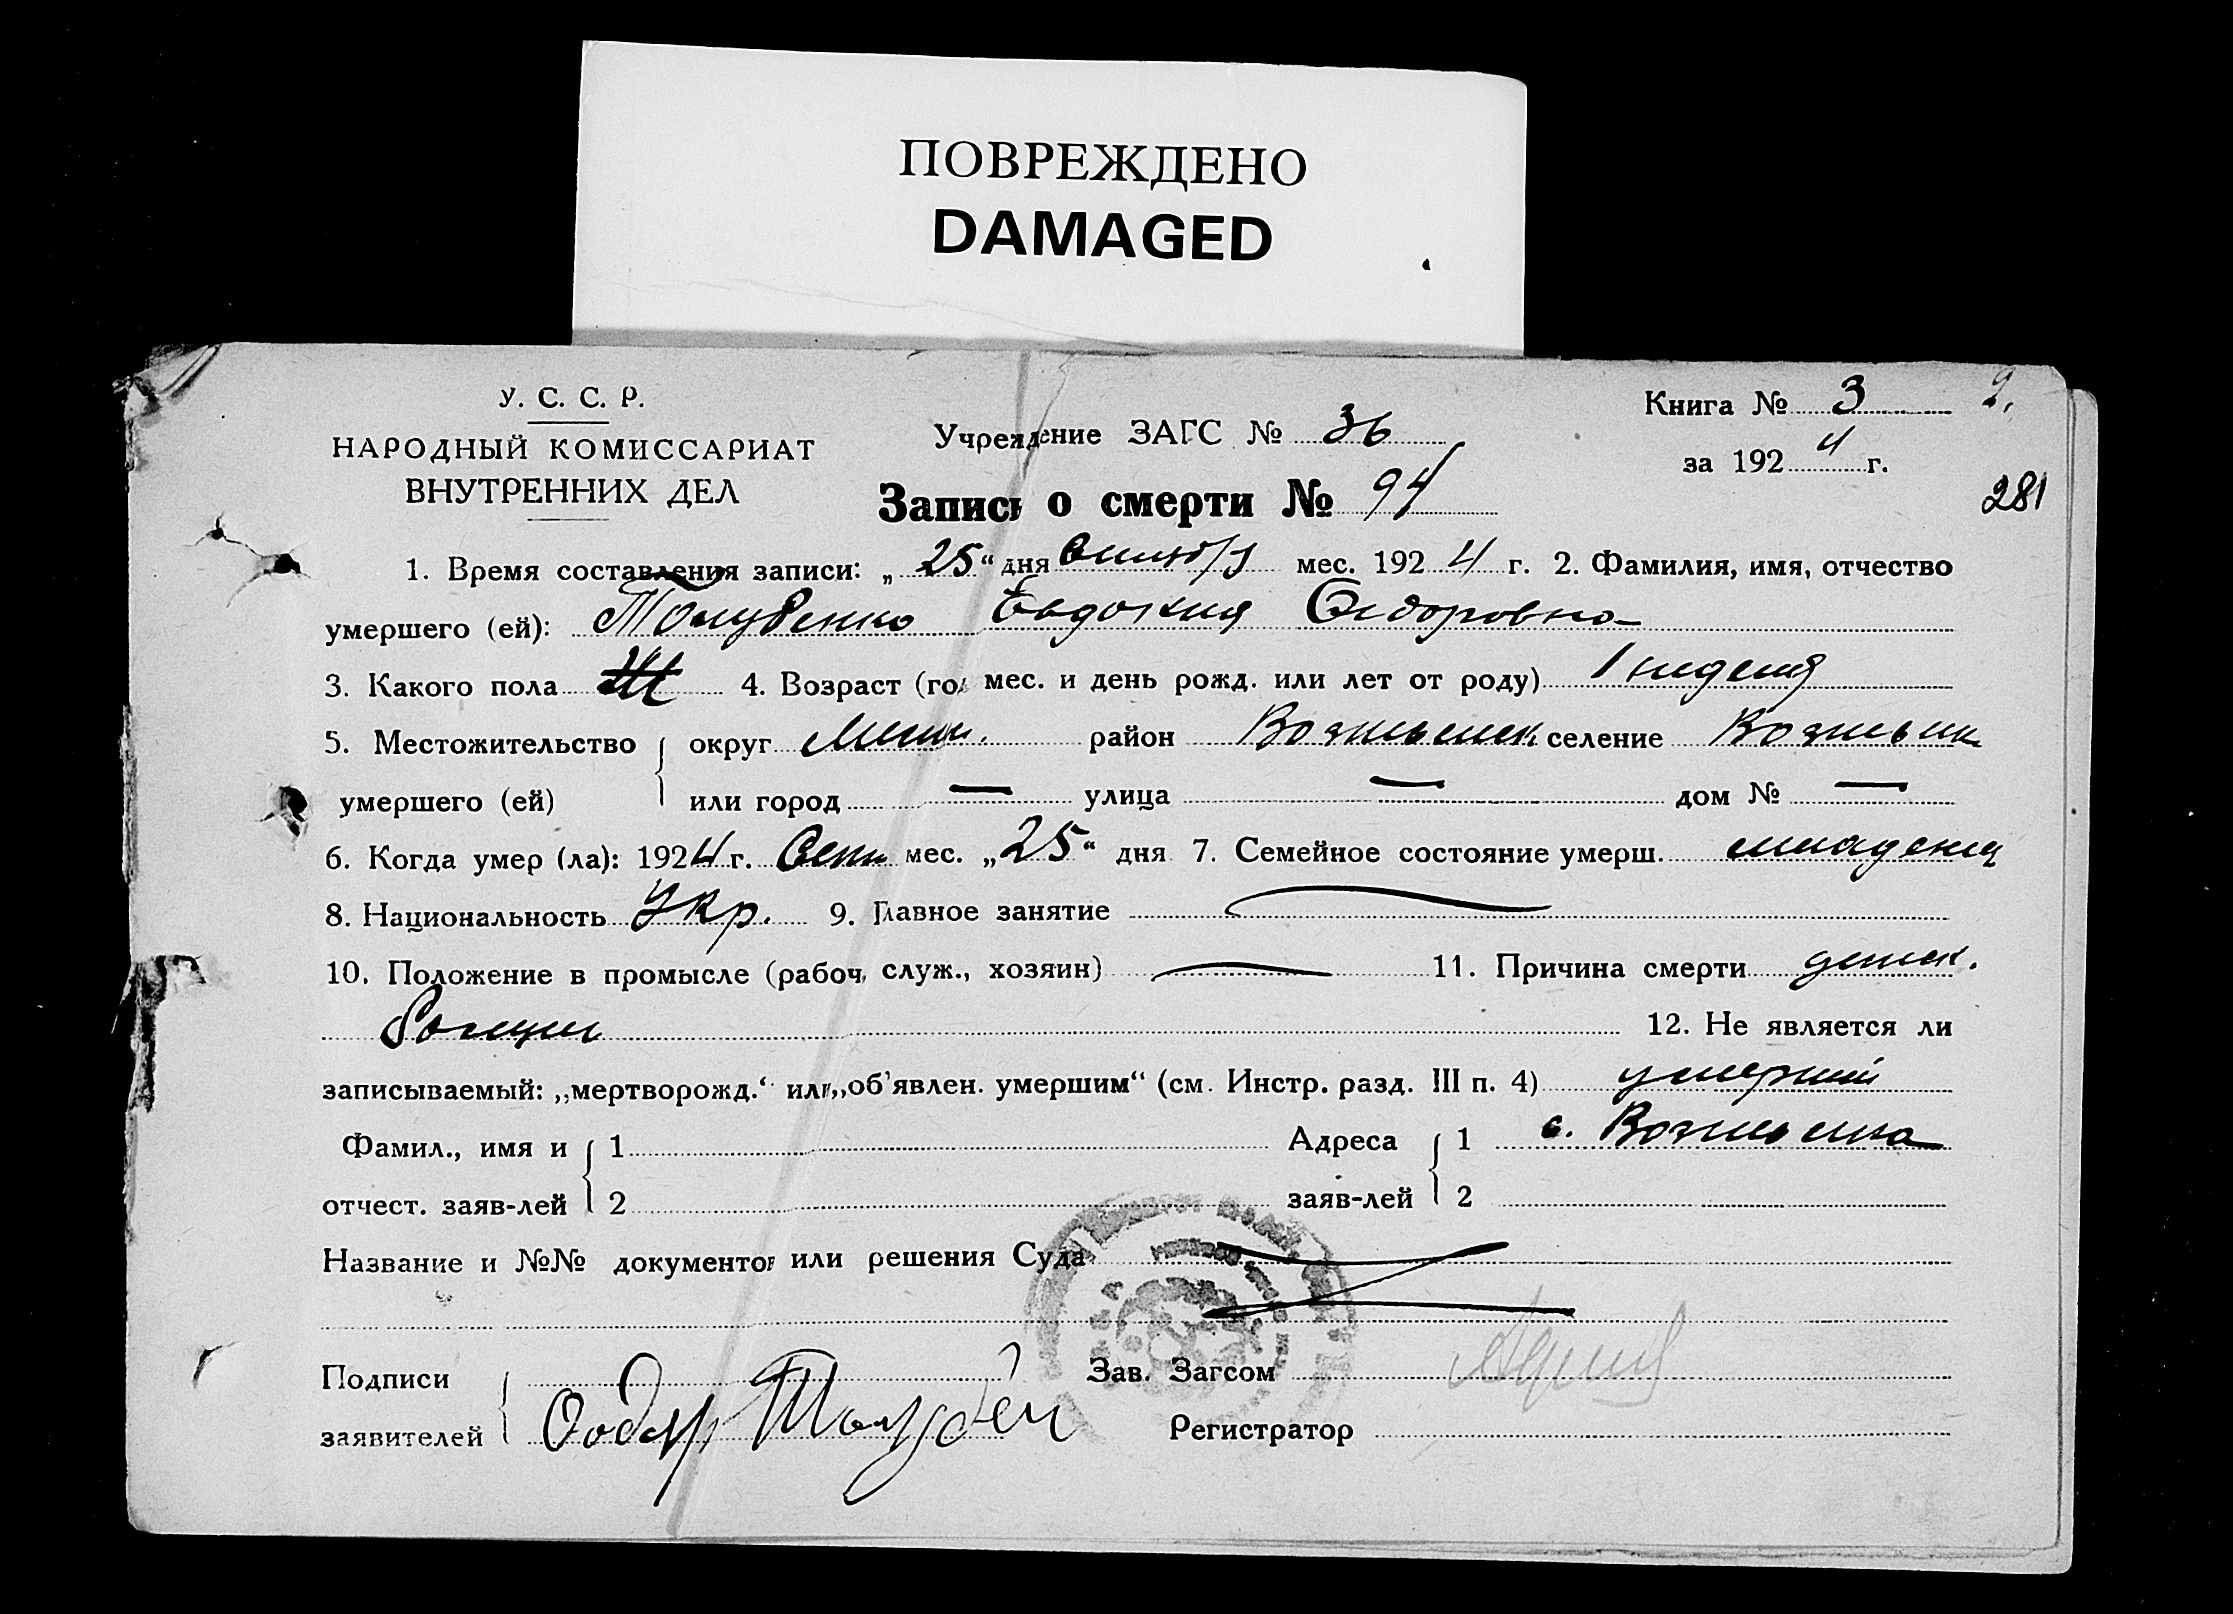 ПОВРЕЖДЕНО
DAMAGED
У. С. С. Р.
НАРОДНЫЙ КОМИССАРИАТ
ВНУТРЕННИХ ДЕЛ
Учреждение ЗАГС № 36
Книга № 3
за 1924 г.
Запись о смерти № 94
281
1. Время составления записи: „25“ дня мес. 1924 г. 2. Фамилия, имя, отчество
умершего (ей): Евдокия Федоровна
3. Какого пола Ж 4. Возраст (год мес. и день рожд. или лет от роду) 1 неделя
5. Местожительство округ район селение
умершего (ей) или город — улица — дом № —
6. Когда умер (ла): 1924 г. Сент мес. „25“ дня 7. Семейное состояние умерш. младенец
8. Национальность Укр. 9. Главное занятие
10. Положение в промысле (рабоч, служ., хозяин) 11. Причина смерти
12. Не является ли
записываемый: „мертворожд.“ или „об'явлен. умершим“ (см. Инстр. разд. III п. 4) умерший
Фамил., имя и 1 Адреса 1 с.
отчест. заяв-лей 2 заяв-лей 2
Название и №№ документов или решения Суда
Подписи Зав. Загсом
заявителей Регистратор